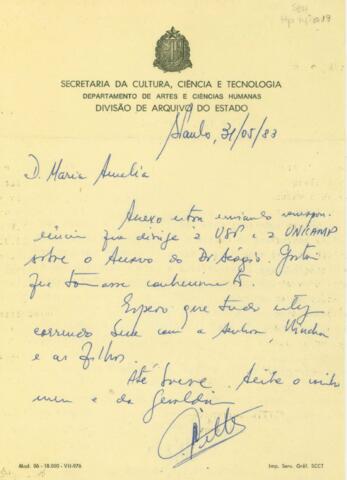 SECRETARIA DA CULTURA, CIÊNCIA E TECNOLOGIA
DEPARTAMENTO DE ARTES E CIÊNCIAS HUMANAS
DIVISÃO DE ARQUIVO DO ESTADO
S. Paulo, 31/05/83
D. Maria Amelia
Anexo estou enviando correspon
dência que dirige à USP e à UNICAMP
sobre o Acervo do Dr Sérgio. Gostaria
que tomasse conhecimento.
Espero que tudo esteja
correndo bem com a senhora,
e as filhas.
Até breve. Aceite o
meu e da Geraldo
Mod. 06 - 18.000 - VII-976
Imp. Serv. Gráf. SCCT